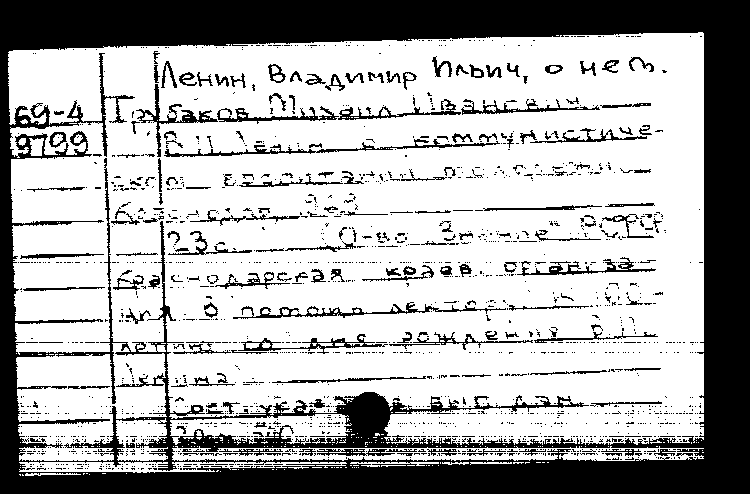 Ленин, Владимир Ильич, о нем.
69-4 Трубаков, Михаил Иванович.
9799 В.И. Ленин о коммунистиче-
ском воспитании молодежи.
Краснодар, 968
23 с. (О-во "Знание" РСФСР.
Краснодарская краев. организа-
ция В помощь лектору. К 100-
летию со дня рождения В.И.
Ленина)
Сост. указ. в вып. дан.